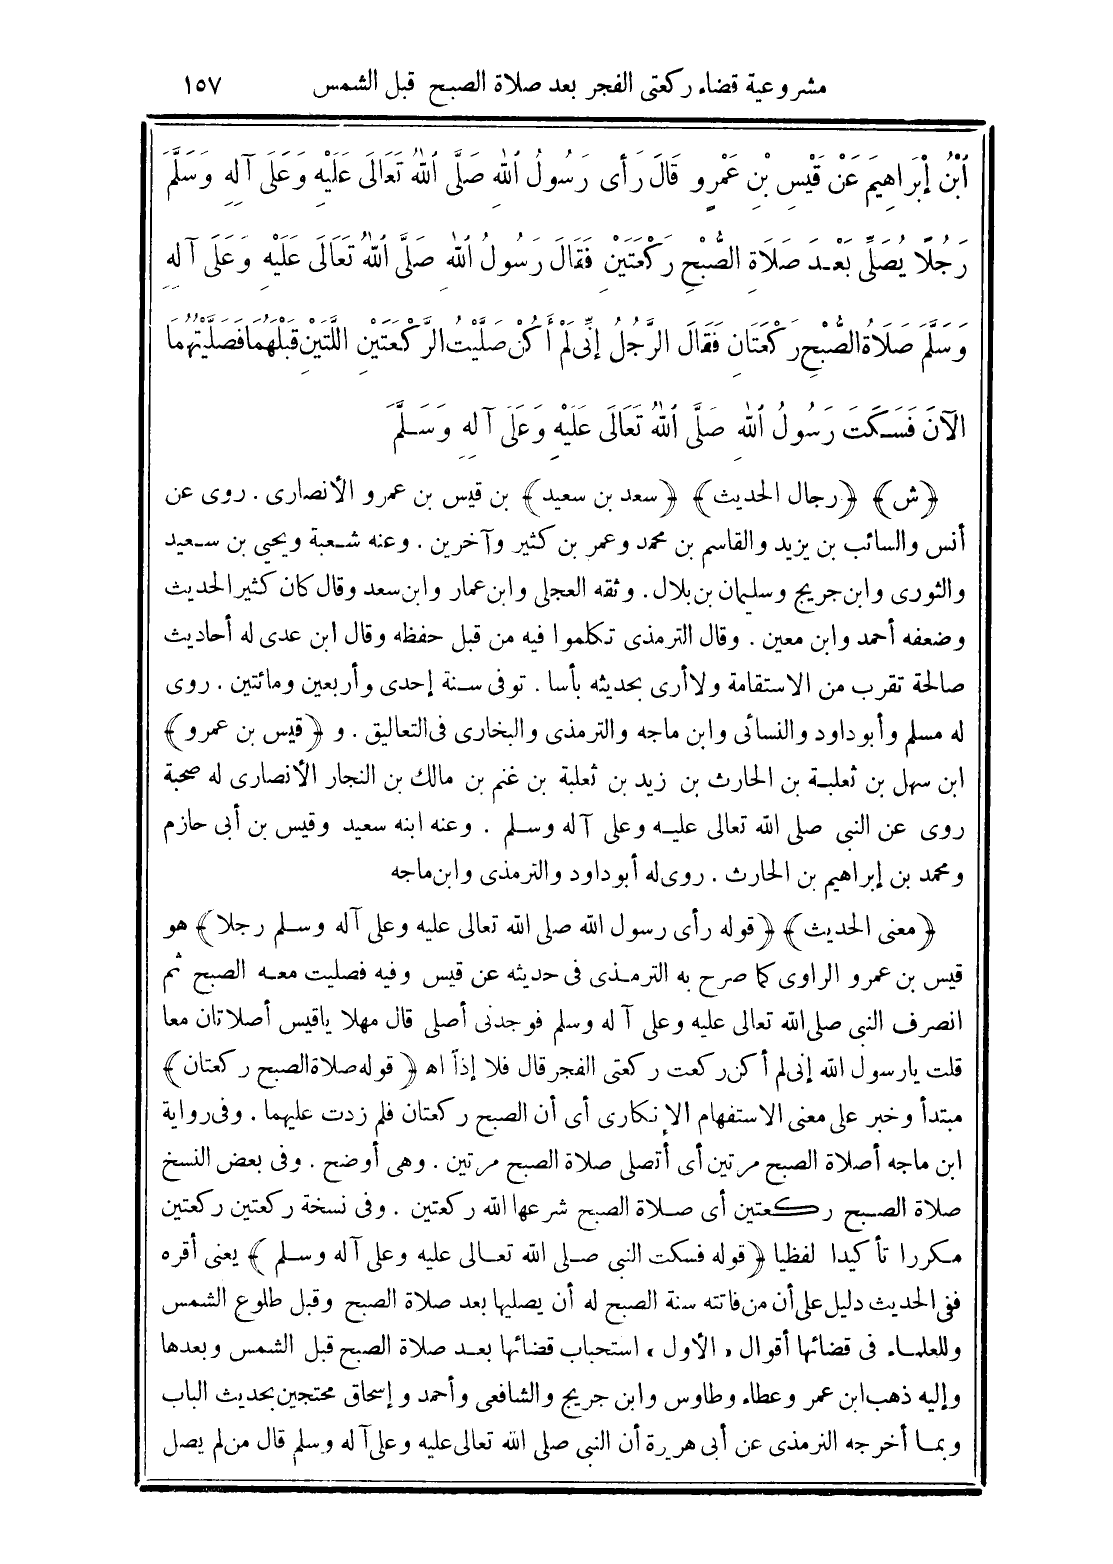 مشروعية قضاء ركعتى الفجر بعد صلاة الصبح قبل الشمس ١٥٧
ٱبْنُ إِبْرَاهِيمَ عَنْ قَيْسِ بْنِ عَمْرٍو قَالَ رَأَى رَسُولُ ٱللهِ صَلَّى ٱللهُ تَعَالَى عَلَيْهِ وَعَلَى آلِهِ وَسَلَّمَ
رَجُلًا يُصَلِّى بَعْدَ صَلَاةِ الصُّبْحِ رَكْعَتَيْنِ فَقَالَ رَسُولُ ٱللهِ صَلَّى ٱللهُ تَعَالَى عَلَيْهِ وَعَلَى آلِهِ
وَسَلَّمَ صَلَاةُ الصُّبْحِ رَكْعَتَانِ فَقَالَ الرَّجُلُ إِنِّى لَمْ أَكُنْ صَلَّيْتُ الرَّكْعَتَيْنِ اللَّتَيْنِ قَبْلَهُمَا فَصَلَّيْتُهُمَا
الْآنَ فَسَكَتَ رَسُولُ ٱللهِ صَلَّى ٱللهُ تَعَالَى عَلَيْهِ وَعَلَى آلِهِ وَسَلَّمَ
﴿ش﴾ ﴿رجال الحديث﴾ ﴿سعد بن سعيد﴾ بن قيس بن عمرو الأنصارى . روى عن
أنس والسائب بن يزيد والقاسم بن محمد وعمر بن كثير وآخرين . وعنه شعبة ويحيى بن سعيد
والثورى وابن جريج وسليمان بن بلال . وثقه العجلى وابن عمار وابن سعد وقال كان كثير الحديث
وضعفه أحمد وابن معين . وقال الترمذى تكلموا فيه من قبل حفظه وقال ابن عدى له أحاديث
صالحة تقرب من الاستقامة ولا أرى بحديثه بأسا . توفى سنة إحدى وأربعين ومائتين . روى
له مسلم وأبوداود والنسائى وابن ماجه والترمذى والبخارى فى التعاليق . و ﴿قيس بن عمرو﴾
ابن سهل بن ثعلبة بن الحارث بن زيد بن ثعلبة بن غنم بن مالك بن النجار الأنصارى له صحبة
روى عن النبى صلى الله تعالى عليه وعلى آله وسلم . وعنه ابنه سعيد وقيس بن أبى حازم
ومحمد بن إبراهيم بن الحارث . روى له أبوداود والترمذى وابن ماجه
﴿معنى الحديث﴾ ﴿قوله رأى رسول الله صلى الله تعالى عليه وعلى آله وسلم رجلا﴾ هو
قيس بن عمرو الراوى كما صرح به الترمذى فى حديثه عن قيس وفيه فصليت معه الصبح ثم
انصرف النبى صلى الله تعالى عليه وعلى آله وسلم فوجدنى أصلى قال مهلا ياقيس أصلاتان معا
قلت يارسول الله إنى لم أكن ركعت ركعتى الفجر قال فلا إذاً اه ﴿قوله صلاة الصبح ركعتان﴾
مبتدأ وخبر على معنى الاستفهام الإنكارى أى أن الصبح ركعتان فلم زدت عليهما . وفى رواية
ابن ماجه أصلاة الصبح مرتين أى أتصلى صلاة الصبح مرتين . وهى أوضح . وفى بعض النسخ
صلاة الصبح ركعتين أى صلاة الصبح شرعها الله ركعتين . وفى نسخة ركعتين ركعتين
مكررا تأكيدا لفظيا ﴿قوله فسكت النبى صلى الله تعالى عليه وعلى آله وسلم﴾ يعنى أقره
ففى الحديث دليل على أن من فاتته سنة الصبح له أن يصليها بعد صلاة الصبح وقبل طلوع الشمس
وللعلماء فى قضائها أقوال «الأول» استحباب قضائها بعد صلاة الصبح قبل الشمس وبعدها
وإليه ذهب ابن عمر وعطاء وطاوس وابن جريج والشافعى وأحمد وإسحاق محتجين بحديث الباب
وبما أخرجه الترمذى عن أبى هريرة أن النبى صلى الله تعالى عليه وعلى آله وسلم قال من لم يصل